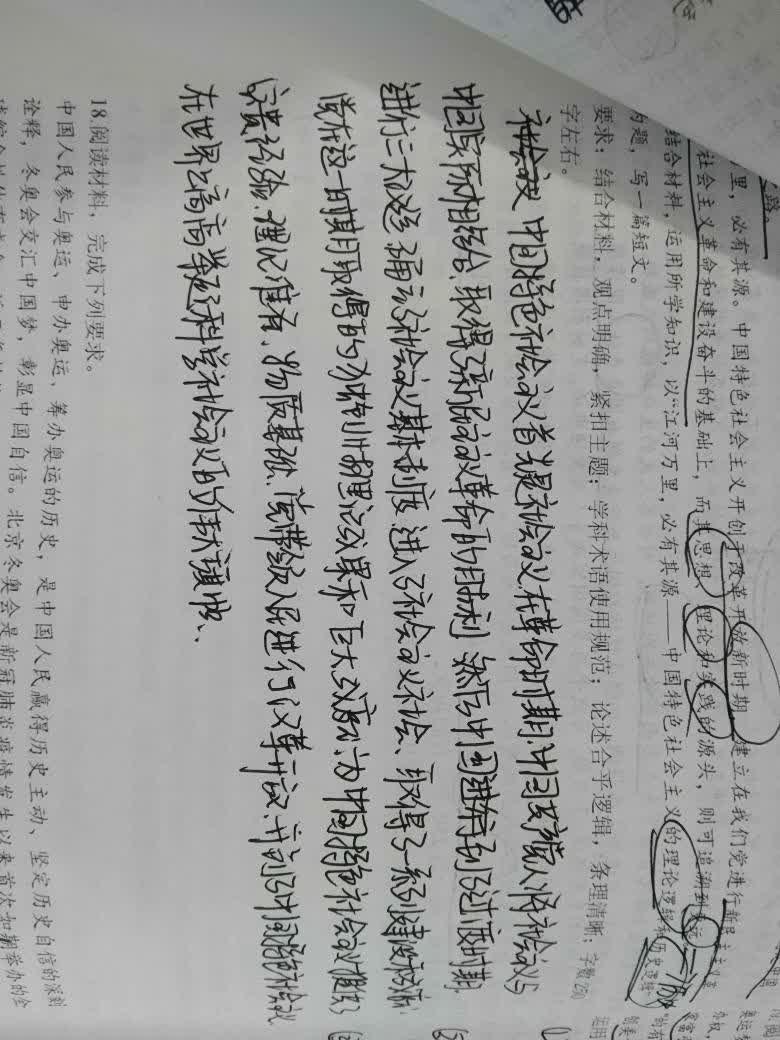 里，必有其源。中国特色社会主义开创于改革开放新时期，建立在我们党进行新民主主义革
社会主义革命和建设奋斗的基础上，而其思想、理论和实践的源头，则可追溯到
结合材料，运用所学知识，以“江河万里，必有其源——中国特色社会主义的理论逻辑和历史逻辑”
为题，写一篇短文。
要求：结合材料，观点明确，紧扣主题；学科术语使用规范；论述合乎逻辑，条理清晰；字数250
字左右。
中国特色社会主义首先是社会主义在革命时期，中国共产党人将社会主义与
中国实际相结合，取得了新民主主义革命的胜利 然后中国进入到了过渡时期，
进行三大改造 确立了社会主义基本制度 进入了社会主义社会、取得了一系列建设成就
党在这一时期取得的独创性理论成果和巨大成就，为中国特色社会主义提供了
宝贵经验、理论准备、物质基础、党带领人民进行改革开放、开创了中国特色社会主义
在世界上高高举起了科学社会主义的伟大旗帜、
18.阅读材料，完成下列要求。
中国人民参与奥运、申办奥运、筹办奥运的历史，是中国人民赢得历史主动、坚定历史自信的深刻
诠释，冬奥会交汇中国梦，彰显中国自信。北京冬奥会是新冠肺炎疫情发生以来首次如期举办的全